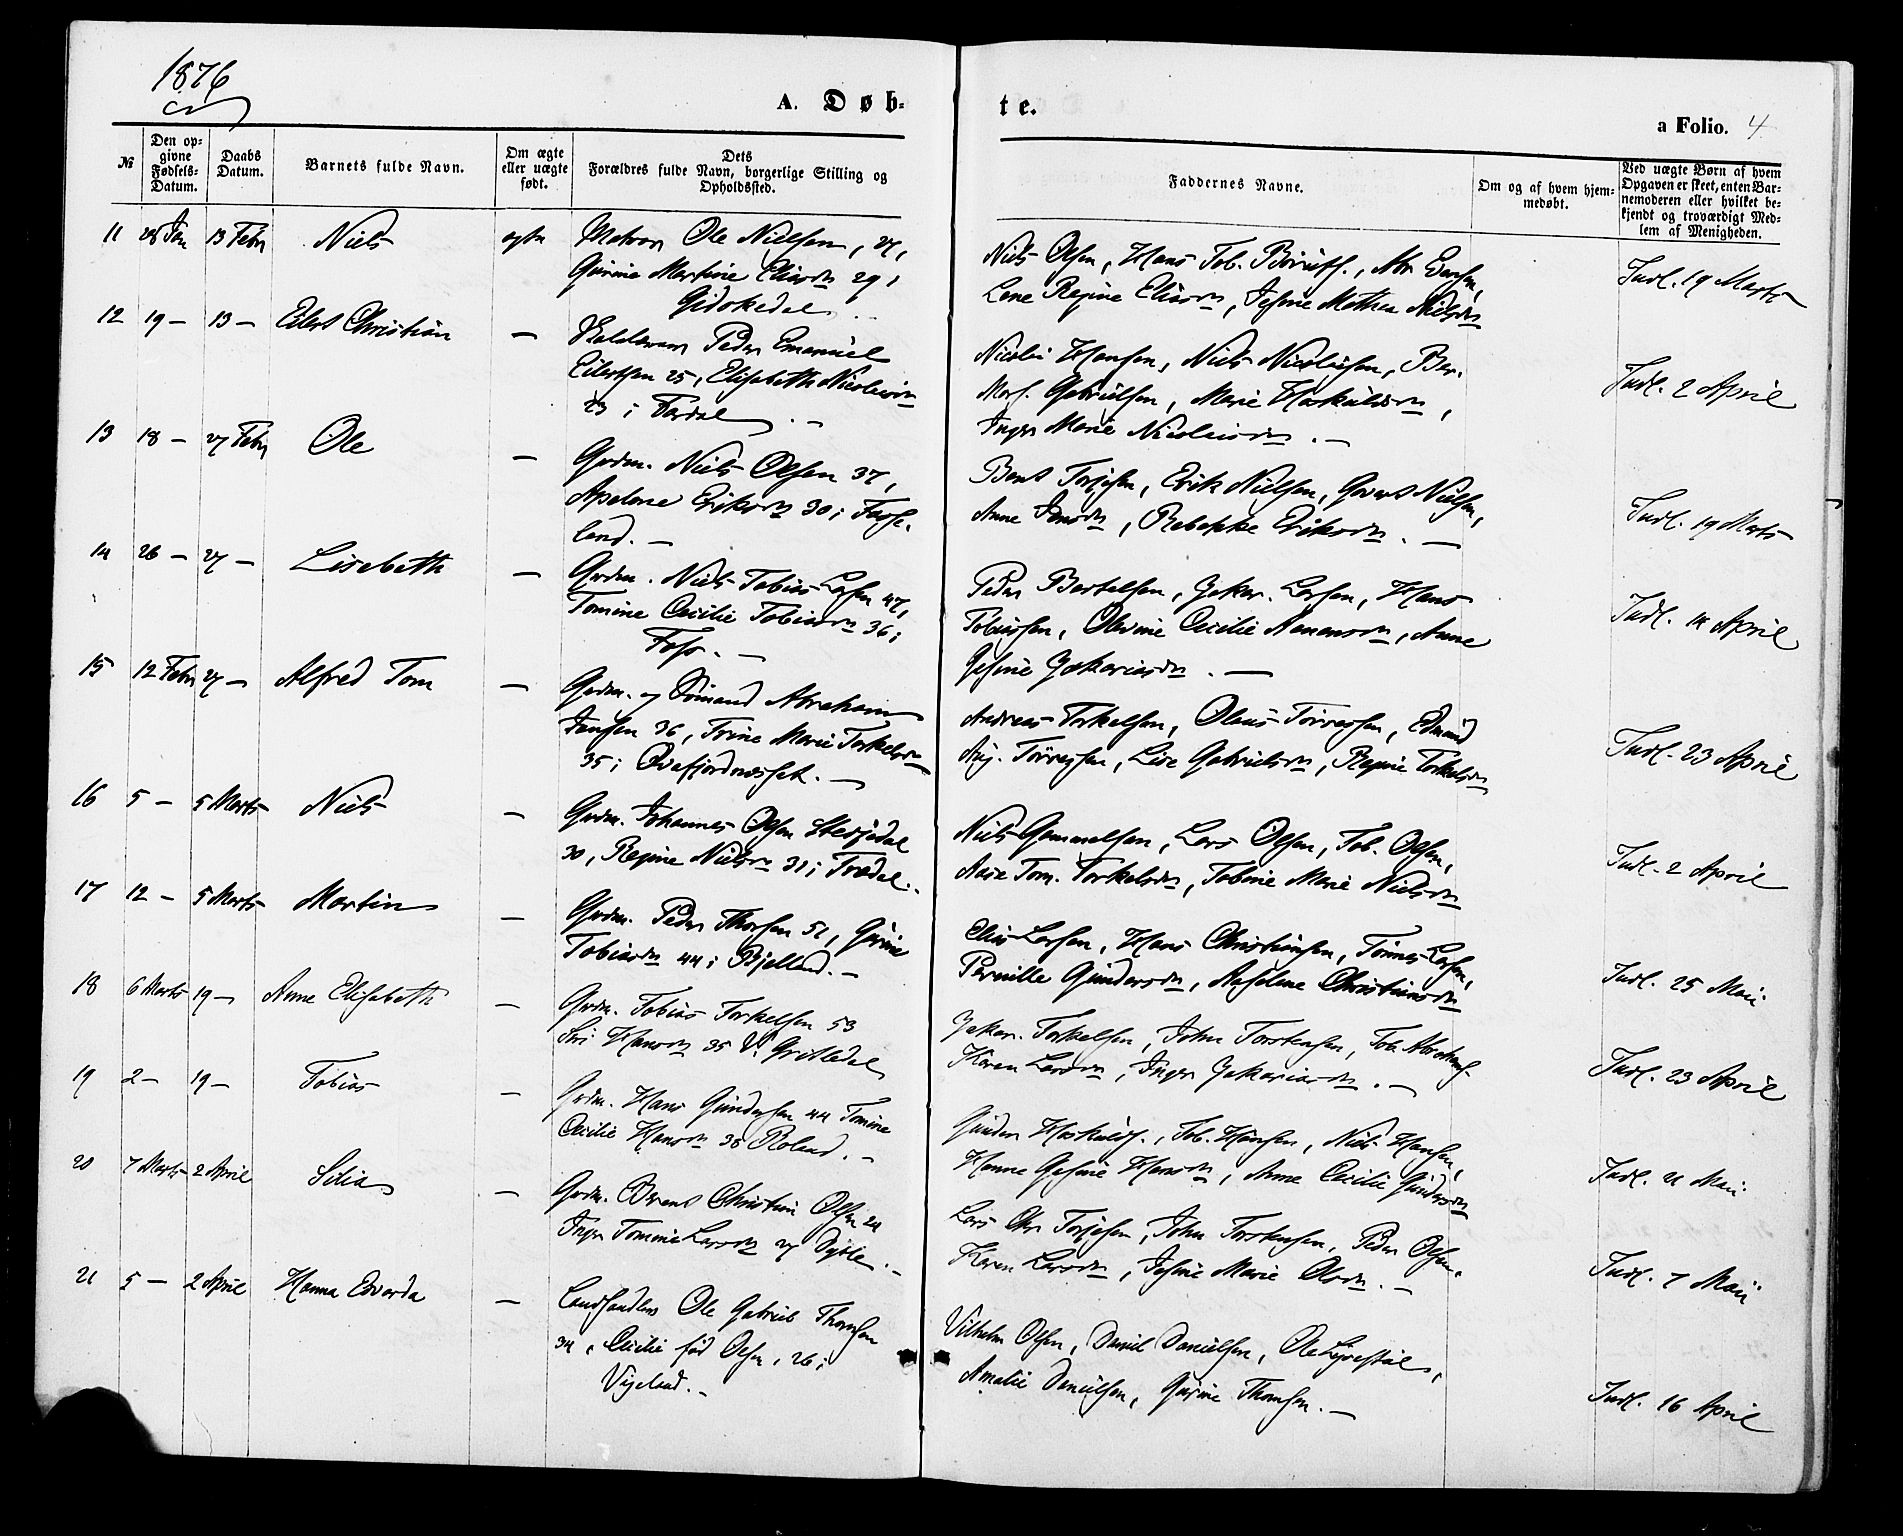 1876
A. Døb-
te.
a Folio. 4
№
Den op-
givne
Fødsels-
Datum.
Daabs
Datum.
Barnets fulde Navn.
Om ægte
eller uægte
født.
Dets
Forældres fulde Navn, borgerlige Stilling og
Opholdssted.
Faddernes Navne.
Om og af hvem hjem-
medøbt.
Ved uægte Børn af hvem
Opgaven er skeet, enten Bar-
nemoderen eller hvilket be-
kjendt og troværdigt Med-
lem af Menigheden.
11 28 Jan 13 Febr Niels ægte Matros Ole Nielsen, 27,
Gurine Martine Eliasdn 29,
Gidskedal
Niels Olsen, Hans Tob.
Lene Regine Eliasdn, Jesine Mathea Nielsdn
Indl. 19 Marts
12 19 — 13 — Eilert Christian — Peder Emanuel
Eilertsen 25, Elisabeth Nicolaisdn
23 i Fardal. —
Nicolai Hansen, Niels Nicolaisen, Ber.
Mart. Gabrielsen, Marie Haskildsdn,
Inger Marie Nicolaisdn. —
Indl. 2 April
13 18 — 27 Febr Ole — Grdm. Niels Olsen 37,
Apelone Eriksdn 30 i Fasse-
land. —
Bent Torjesen, Erik Nielsen, Govert Nielsen,
Anne Jensdn, Rebekke Eriksdn. —
Indl. 19 Marts
14 26 — 27 — Lisebeth — Grdm. Niels Tobias Larsen 47,
Tomine Cecilie Tobiasdn 36 i
Foss. —
Peder Bertelsen, Zakar. Larsen, Hans
Tobiassen, Olevine Cecilie Aanensdn, Anne
Jesine Zakariasdn. —
Indl. 14 April
15 12 Febr 27 — Alfred Tom — Grdm. og Sømand Abraham
Jensen 36, Trine Marie Torkelsdn
35 i
Andreas Torkelsen, Olaus Tørresen, Edmund
Aug. Tørresen, Lise Gabrielsdn, Regine Torkelsdn
Indl. 23 April
16 5 — 5 Marts Niels — Grdm. Johannes Olsen
30, Regine Nielsdn 31 i Trædal. -
Niels Gummelsen, Lars Olsen, Tob. Olsen,
Aase Tom. Torkelsdn, Tobine Marie Nielsdn
Indl. 2 April
17 12 — 5 Marts Martin — Grdm. Peder Thorsen 51, Gurine
Tobiasdn 44 i Bjelland. —
Elias Larsen, Hans Christiansen, Tønnes Larsen,
Pernille Gundersdn, Aaselene Christiansdn
Indl. 25 Mai
18 6 Marts 19 — Anne Elisabeth — Grdm. Tobias Torkelsen 53
Siri Hansdn 35 V. Grisledal
Zakar. Torkelsen, John Torstensen, Tob. Abrahams.
Karen Larsdn, Inger Zakariasdn. —
Indl. 23 April
19 2 — 19 — Tobias — Grdm. Hans Gundersen 44 Tomine
Cecilie Hansdn 35 Roland. —
Gunder Haskilds., Tob. Hansen, Niels Hansen,
Hanne Gesine Hansdn, Anne Cecilie Gundersdn
Indl. 21 Mai
20 7 Marts 2 April Silia — Grdm. Berent Christian Olsen 24
Inger Tomine Larsdn 27 Dyble. —
Lars Chr Torjesen, John Torstensen, Peder Olsen,
Karen Larsdn, Jesine Marie Olsdn. —
Indl. 7 Mai
21 5 — 2 April Hanna Edvarda — Landhandler Ole Gabriel Thomsen
34, Cecilie fød Olsen, 26 i
Vigeland. —
Vilhelm Olsen, Daniel Danielsen, Ole,
Amalie Danielsen, Gurine Thomsen. —
Indl. 16 April